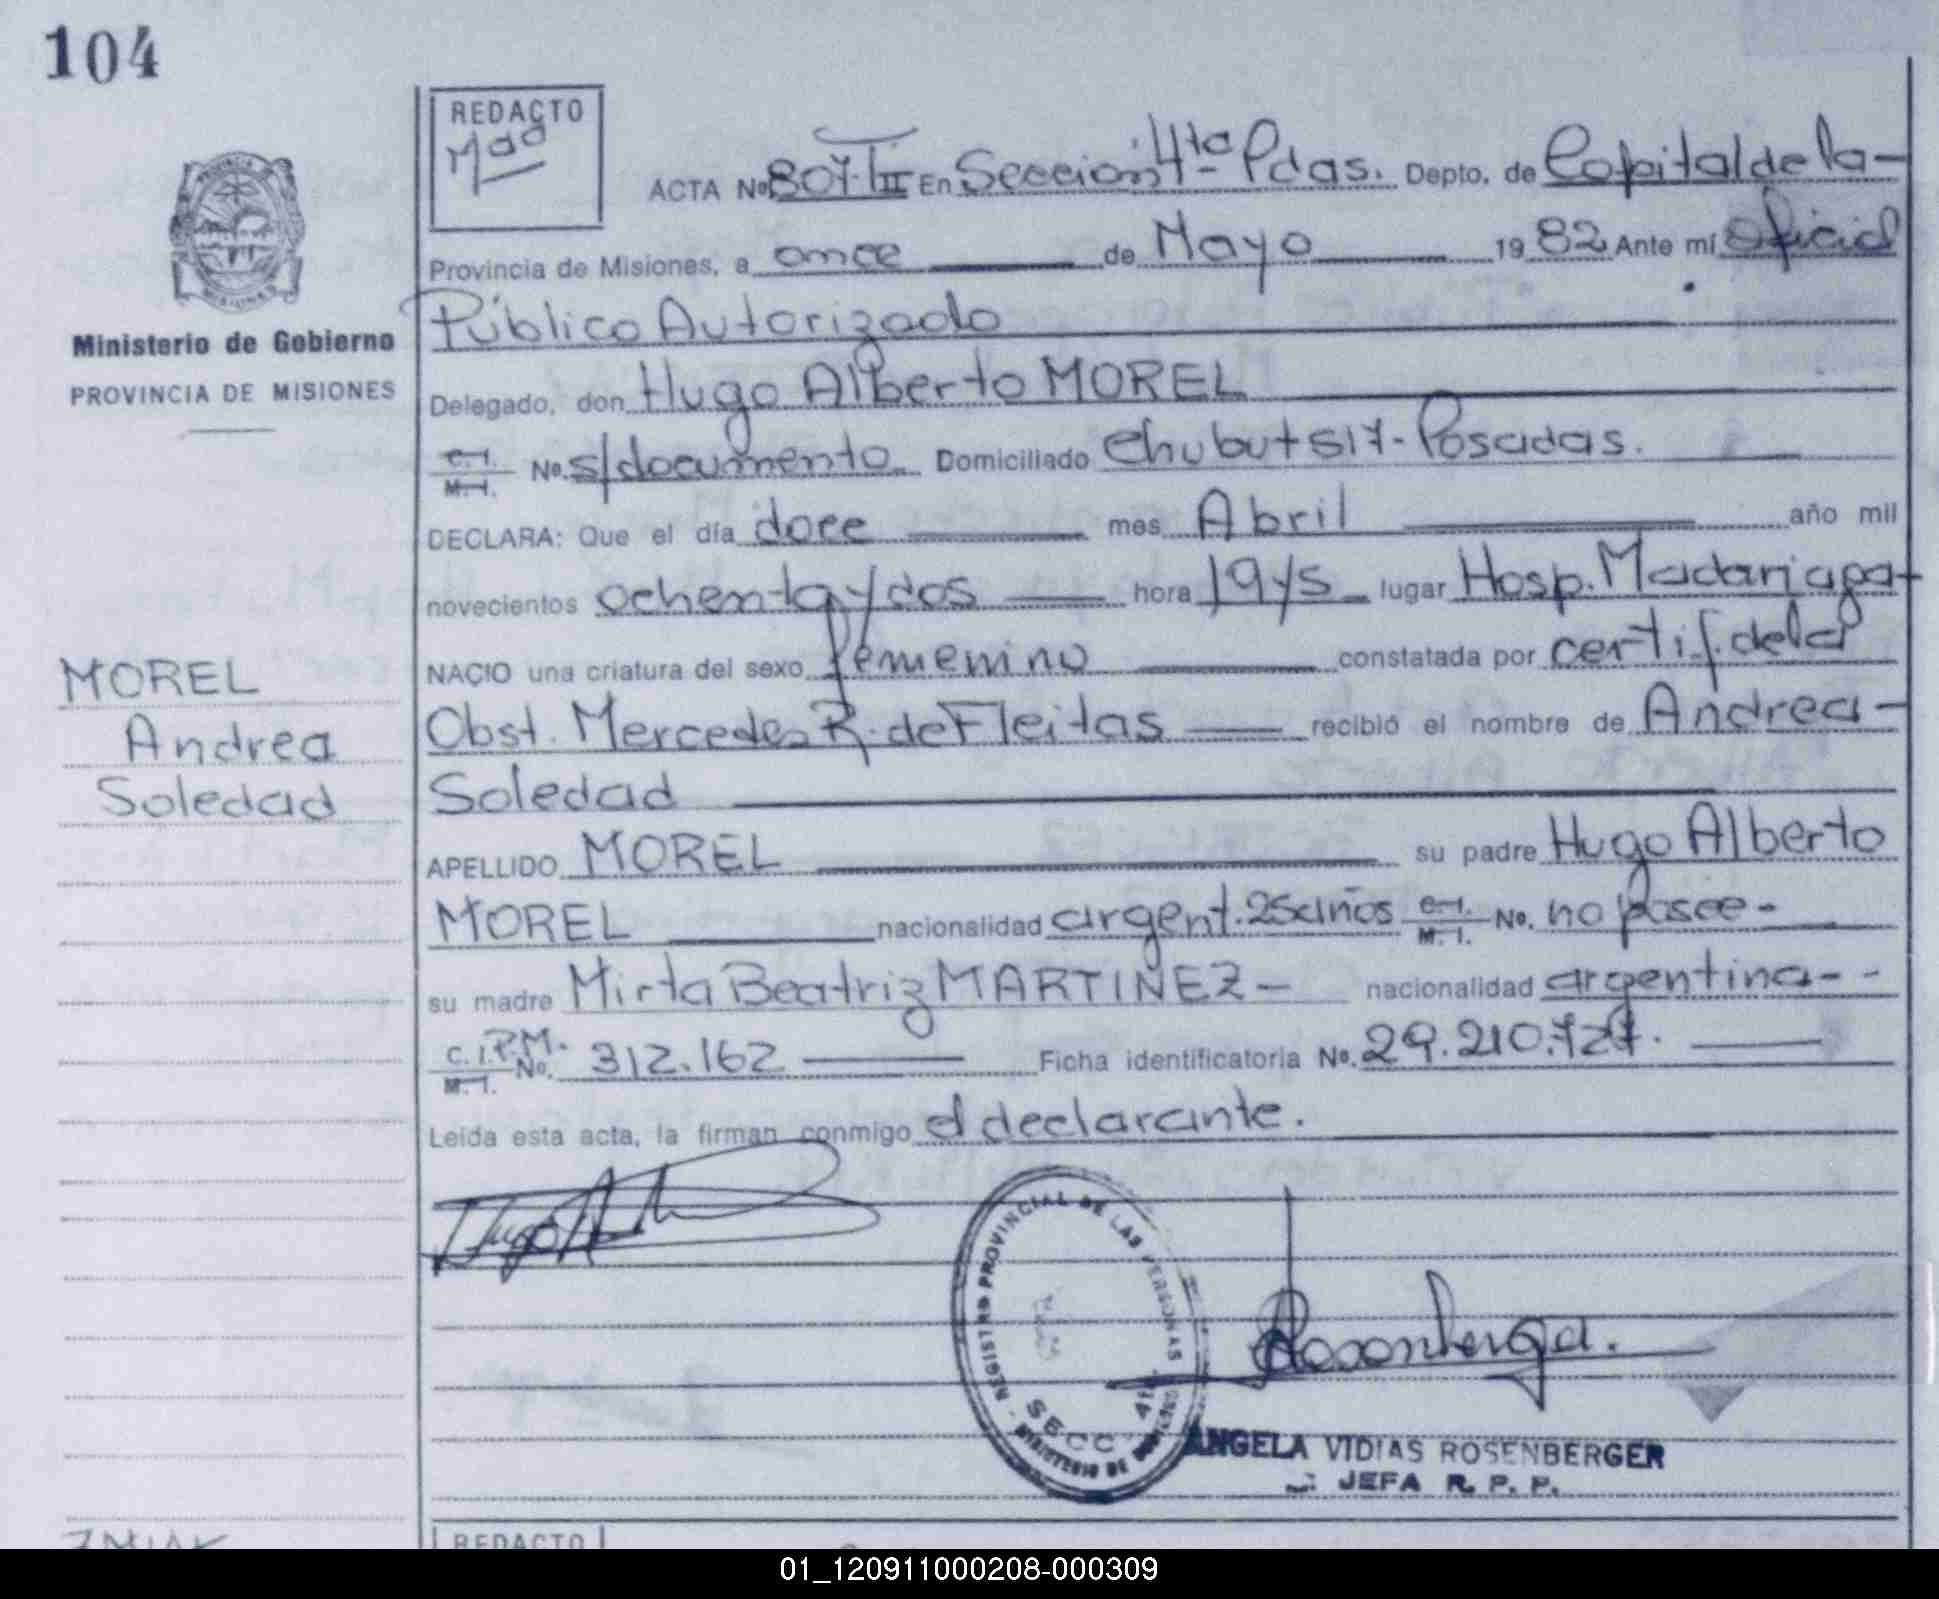 104
REDACTO
ACTA No. 807-T.III En Sección 4ta Pdas. Depto. de Capital de la-
Provincia de Misiones, a once de Mayo 1982 Ante mí Oficial
Público Autorizado
Delegado, don Hugo Alberto MOREL
C.I. M.I. No. s/documento Domiciliado Chubut 517-Posadas.
DECLARA: Que el día doce mes Abril año mil
novecientos ochenta y dos hora 19 y 5 lugar Hosp. Madariaga-
NACIO una criatura del sexo femenino constatada por certif. de la
Obst. Mercedes R. de Fleitas recibió el nombre de Andrea-
Soledad
APELLIDO MOREL su padre Hugo Alberto
MOREL nacionalidad argent. 25 años C.I. M.I. No. no posee-
su madre Mirta Beatriz MARTINEZ- nacionalidad argentina--
C.I.P.M. M.I. No. 312.162 Ficha identificatoria No. 29.210.727.
Leída esta acta, la firman conmigo el declarante.
Ministerio de Gobierno
PROVINCIA DE MISIONES
MOREL
Andrea
Soledad
REGISTRO PROVINCIAL DE LAS PERSONAS
SECC. 4ta.
MINISTERIO DE GOBIERNO
ANGELA VIDIAS ROSENBERGER
JEFA R. P. P.
REDACTO
01_120911000208-000309